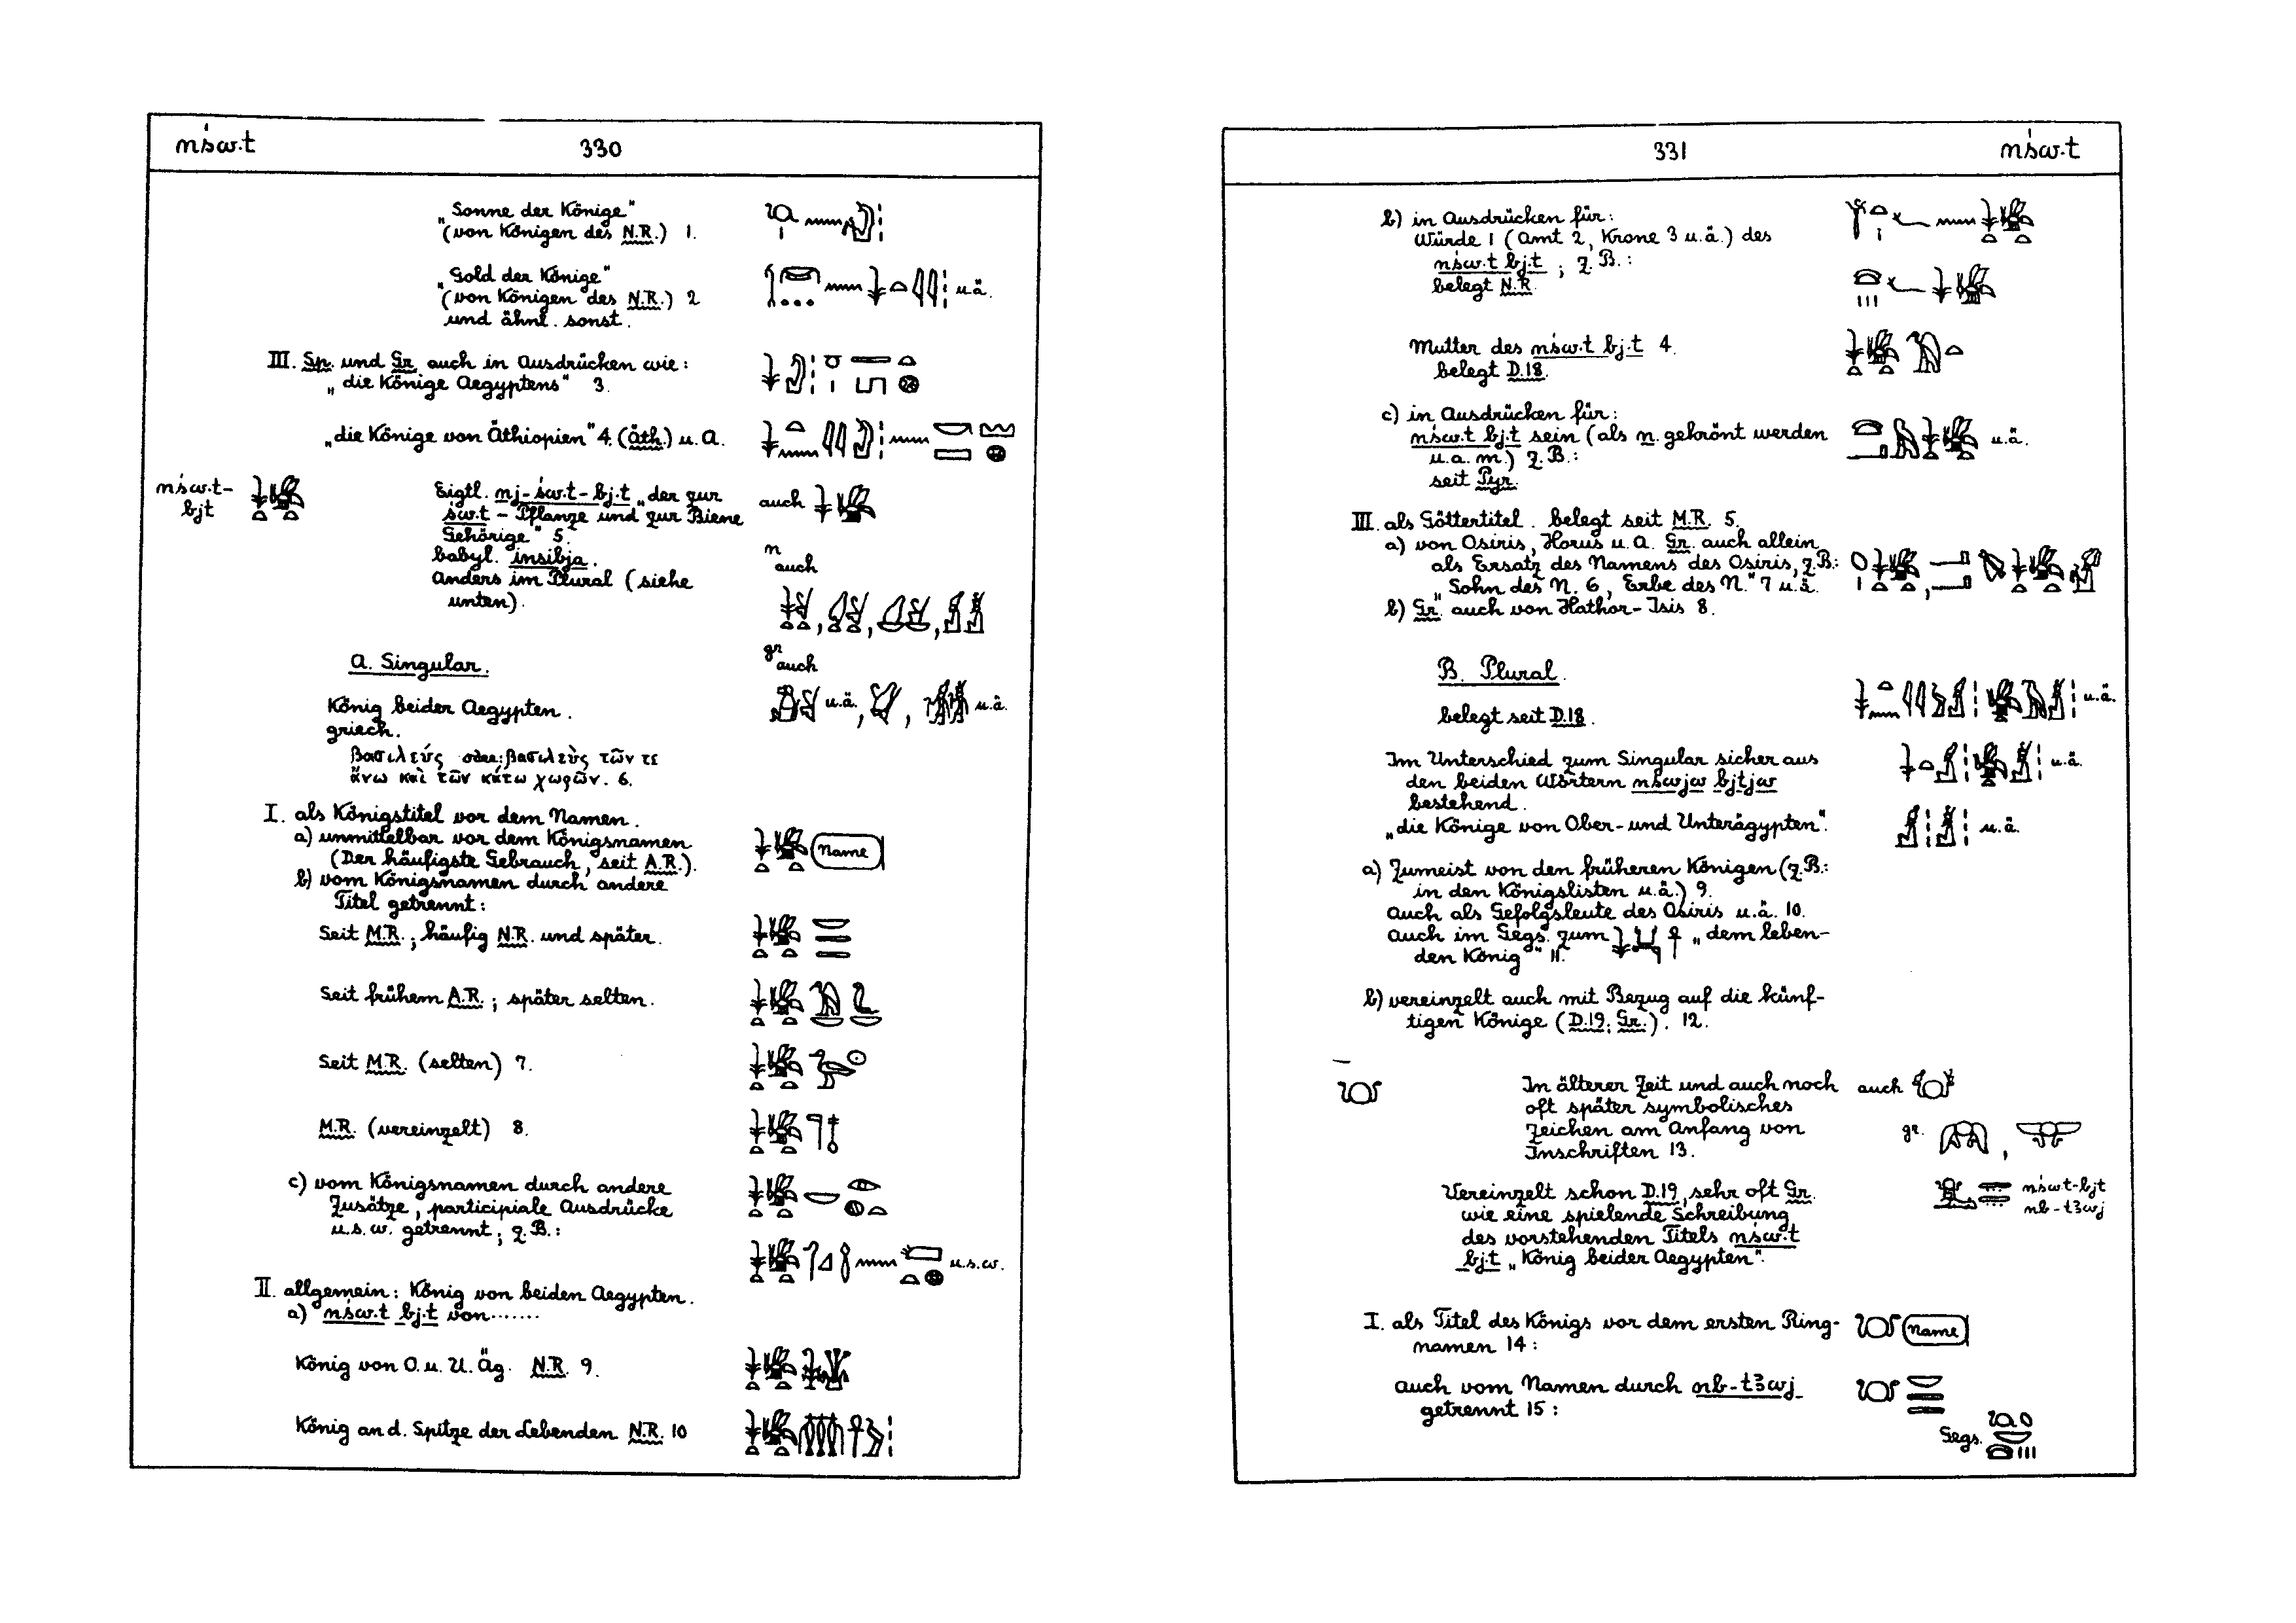 nśw.t 330
„Sonne der Könige"
(von Königen des N.R.) 1.
„Gold der Könige"
(von Königen des N.R.) 2
und ähnl. sonst.
u.ä.
III. Sp. und Gr. auch in Ausdrücken wie:
„die Könige Aegyptens" 3.
„die Könige von Äthiopien" 4. (äth.) u. A.
nśw.t-
bjt
Eigtl. nj-św.t-bj.t „der zur
św.t-Pflanze und zur Biene
Gehörige" 5.
babyl. insibja.
Anders im Plural (siehe
unten).
auch
n
auch
gr
auch
u.ä., , u.ä.
A. Singular.
König beider Aegypten.
griech.
βασιλεύς oder: βασιλεὺς τῶν τε
ἄνω καὶ τῶν κάτω χωρῶν. 6.
I. als Königstitel vor dem Namen.
a) unmittelbar vor dem Königsnamen
(Der häufigste Gebrauch, seit A.R.).
Name
b) vom Königsnamen durch andere
Titel getrennt:
Seit M.R.; häufig N.R. und später.
Seit frühem A.R.; später selten.
Seit M.R. (selten) 7.
M.R. (vereinzelt) 8.
c) vom Königsnamen durch andere
Zusätze, participiale Ausdrücke
u.s.w. getrennt; z.B.:
u.s.w.
II. allgemein: König von beiden Aegypten.
a) nśw.t bj.t von.......
König von O. u. U. Äg. N.R. 9.
König an d. Spitze der Lebenden N.R. 10
331 nśw.t
b) in Ausdrücken für:
Würde 1 (Amt 2, Krone 3 u.ä.) des
nśw.t bj.t; z.B.:
belegt N.R.
Mutter des nśw.t bj.t 4.
belegt D.18.
c) in Ausdrücken für:
nśw.t bj.t sein (als n. gekrönt werden
u.a.m.) z.B.:
seit Pyr.
u.ä.
III. als Göttertitel. belegt seit M.R. 5.
a) von Osiris, Horus u. A. Gr. auch allein
als Ersatz des Namens des Osiris, z.B.:
„Sohn des N. 6, Erbe des N." 7 u.ä.
b) Gr. auch von Hathor-Isis 8.
B. Plural.
belegt seit D.18.
u.ä.
Im Unterschied zum Singular sicher aus
den beiden Wörtern nśwjw bjtjw
bestehend.
u.ä.
„die Könige von Ober- und Unterägypten".
u.ä.
a) Zumeist von den früheren Königen (z.B.:
in den Königslisten u.ä.) 9.
auch als Gefolgsleute des Osiris u.ä. 10.
auch im Gegs. zum „dem leben-
den König" 11.
b) vereinzelt auch mit Bezug auf die künf-
tigen Könige (D.19; Gr.). 12.
In älterer Zeit und auch noch
oft später symbolisches
Zeichen am Anfang von
Inschriften 13.
auch
gr.
Vereinzelt schon D.19, sehr oft Gr.
wie eine spielende Schreibung
des vorstehenden Titels nśw.t
bj.t „König beider Aegypten".
nśw.t-bjt
nb-tꜣwj
I. als Titel des Königs vor dem ersten Ring-
namen 14:
Name
auch vom Namen durch nb-tꜣwj
getrennt 15:
Gegs.